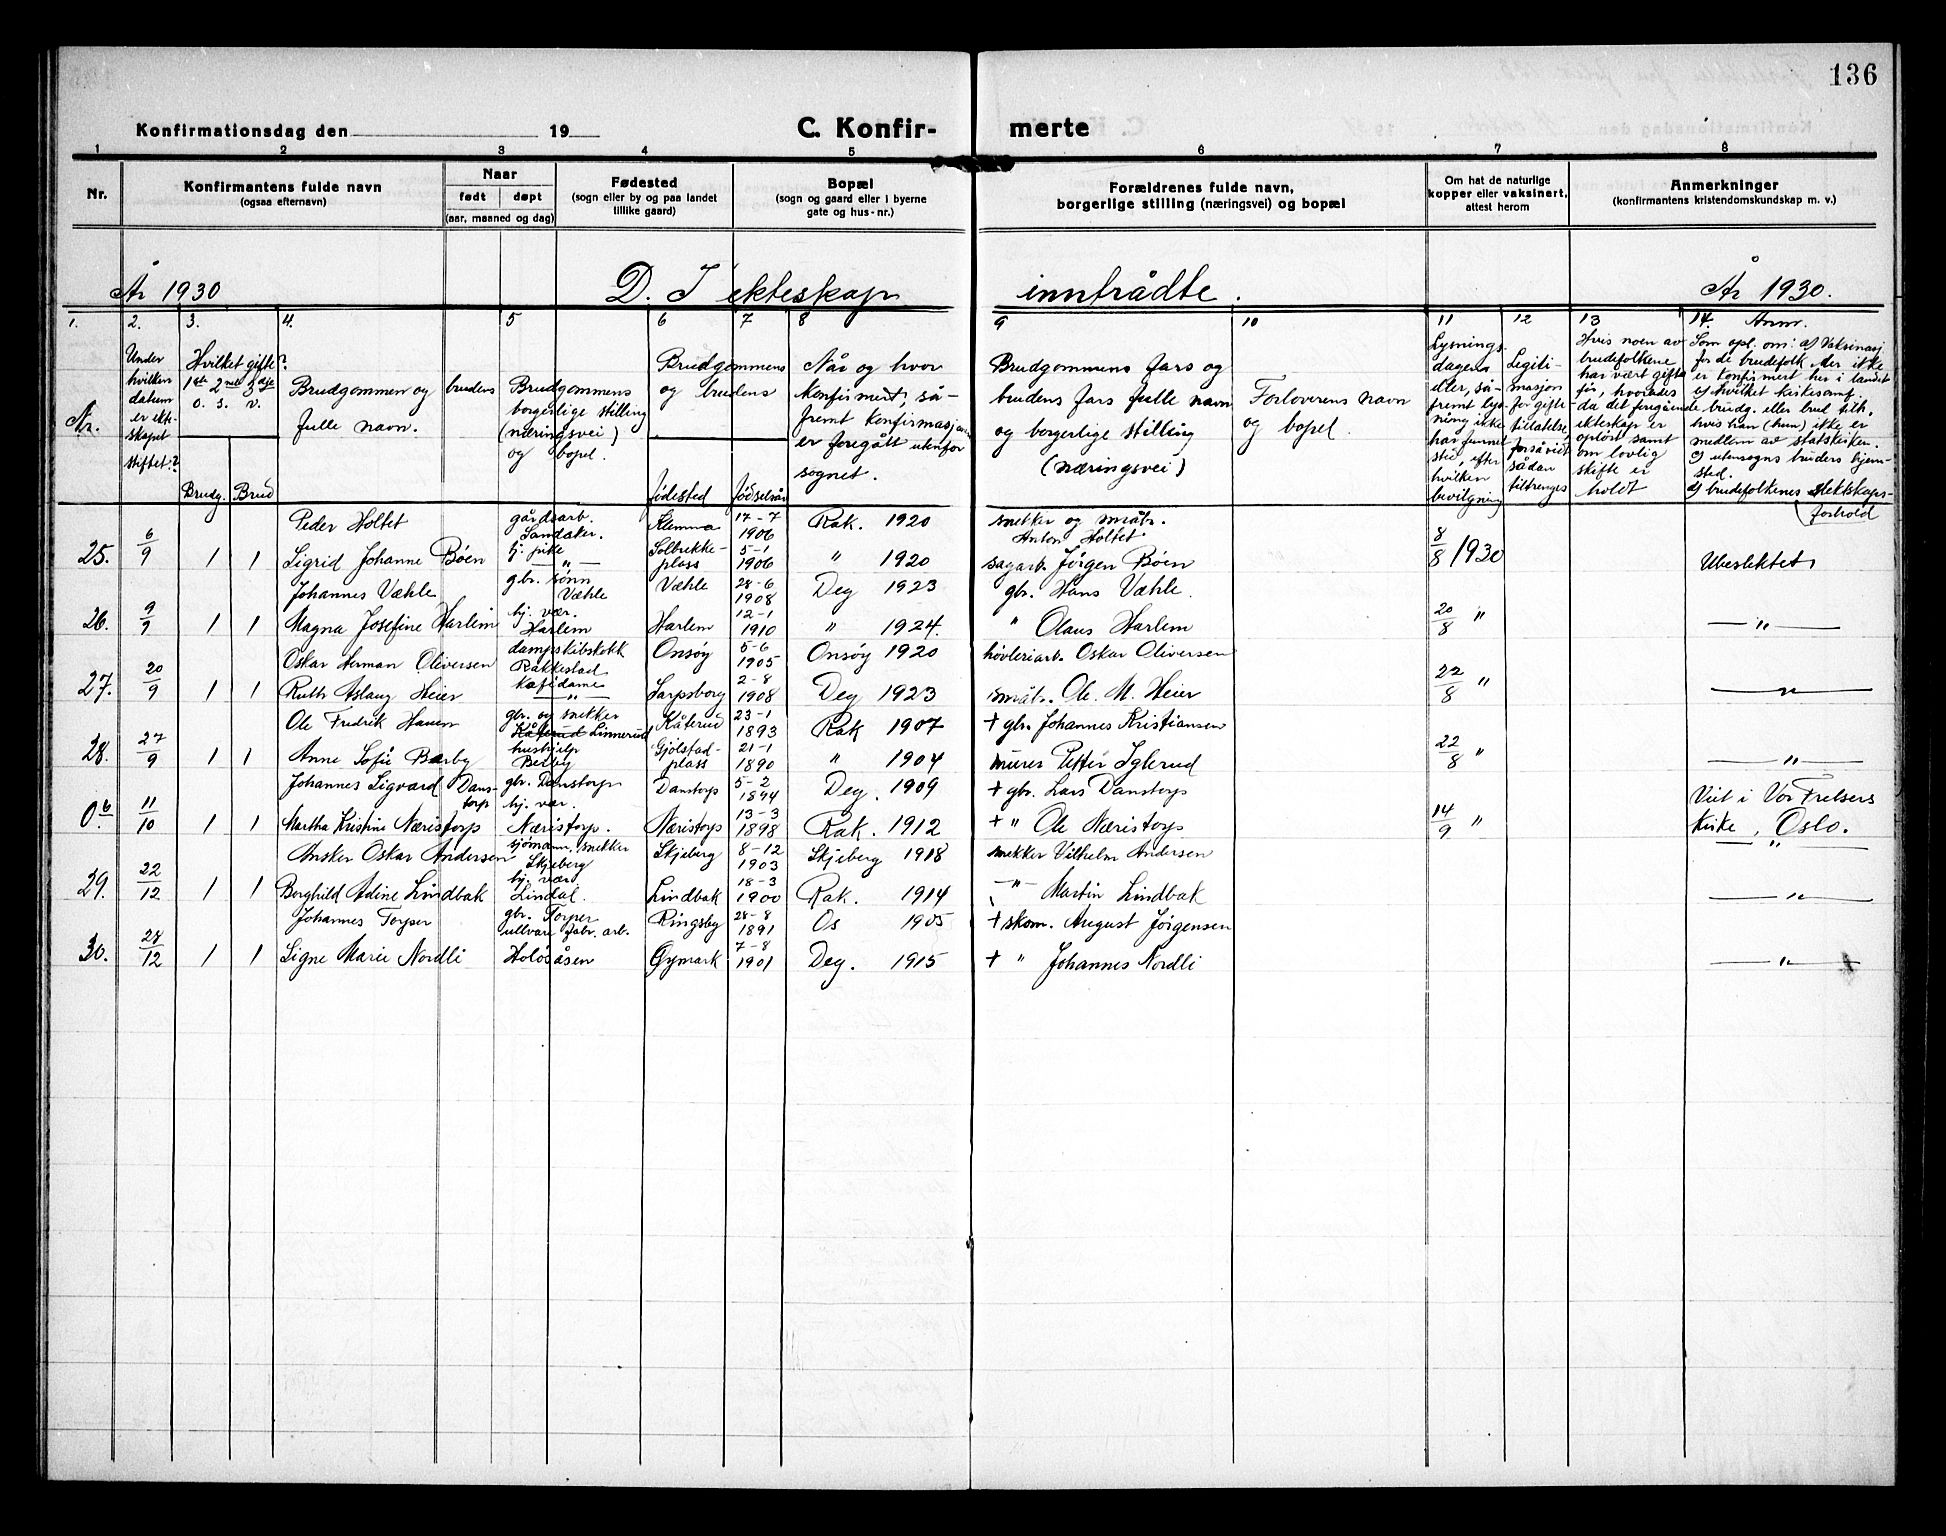 136
Konfirmationsdag den 19
C. Konfir-
merte
1 2 3 4 5 6 7 8
Nr.
Konfirmantens fulde navn
(ogsaa efternavn)
Naar
født døpt
(aar, maaned og dag)
Fødested
(sogn eller by og paa landet
tillike gaard)
Bopæl
(sogn og gaard eller i byerne
gate og hus-nr.)
Forældrenes fulde navn,
borgerlige stilling (næringsvei) og bopæl
Om hat de naturlige
kopper eller vaksinert,
attest herom
Anmerkninger
(konfirmantens kristendomskundskap m. v.)
År 1930
D. I ekteskap
inntrådte.
År 1930.
1. 2. 3. 4. 5 6 7 8 9 10 11 12 13 14. Anm.
Nr.
Under
hvilken
datum
er ekte-
skapet
stiftet?
Hvilket gifte?
1ste 2net 3dje
o. s. v.
Brudg. Brud
Brudgommen og brudens
fulle navn.
Brudgommens
borgerlige stilling
(næringsvei)
og bopel.
Brudgommens
og brudens
fødested fødselsår
Når og hvor
konfirmert, så-
fremt konfirmasjonen
er foregått utenfor
sognet.
Brudgommens fars og
brudens fars fulle navn
og borgerlige stilling
(næringsvei)
Forloverens navn
og bopel.
Lysnings-
dagens
eller, så-
fremt lys-
ning ikke
har funnet
sted, efter
hvilken
bevilgning
Legiti-
masjon
for gifte
tillatelse,
forsåvidt
sådan
tiltrenges
Hvis noen av
brudefolkene
har vært gifte
før, hvorledes
da det foregående
ekteskap er
opløst samt
om lovlig
skifte er
holdt
Som opl. om: a) Vaksinasj.
for de brudefolk der ikke
er konfirmert her i landet
b) hvilket kirkesamf.
brudg. eller brud tilh.
hvis han (hun) ikke er
medlem av statskirken.
c) utensogns bruders hjem-
sted.
d) brudefolkenes slektskaps-
forhold
Peder Holtet gårdsarb. Landaker. Klemma 17-7 1906 Rak. 1920 snekker og småbr. Anton Holtet.
25. 6/9 1 1 Sigrid Johanne Bøen hj. pike — " — Solbrekke-plass 5-1 1906 " 1920 sagarb. Jørgen Bøen 8/8 1930 Ubeslektet
Johannes Væhle gbr. sønn Væhle Væhle 28-6 1908 Deg 1923 gbr. Hans Væhle.
26. 9/9 1 1 Magna Josefine Harlem hj. vær. Harlem Harlem 12-1 1910 " 1924. " Olaus Harlem 20/8 " — " —
Oskar Herman Oliversen dampskibskokk Rakkestad Onsøy 5-6 1905 Onsøy 1920 høvleriarb. Oskar Oliversen
27. 20/9 1 1 Ruth Aslaug Heier Kafédame — " — Sarpsborg 2-8 1908 Deg 1923 småbr. Ole M. Heier 22/8 " — " —
Ole Fredrik Hauen gbr. og snekker Kåterud Linnerud Kåterud 23-1 1893 Rak 1907 + gbr. Johannes Kristiansen
28. 27/9 1 1 Anne Sofie Bærby hushjelp Bærby Gjølstad-plass 21-1 1890 " 1904 murer Petter Iglerud 22/8 " — " —
Johannes Sigvard Danstorp gbr. Danstorp Danstorp 5-2 1894 Deg. 1909 + gbr. Lars Danstorp
0.b 11/10 1 1 Martha Kristine Næristorp hj. vær. Næristorp. Næristorp 13-3 1898 Rak. 1912 + " Ole Næristorp 14/9 " Viet i Vor Frelsers kirke, Oslo.
— " —
Ansker Oskar Andersen sjømann, snekker Skjeberg Skjeberg 8-12 1903 Skjeberg 1918 snekker Vilhelm Andersen
29. 22/12 1 1 Borghild Adine Lindbak hj. vær. Lindal. Lindbak 18-3 1900 Rak. 1914 — " — Martin Lindbak — " —
Johannes Torper gbr. Torper ullvare fabr. arb. Ringsby 28-8 1891 Os 1905 + skom. August Jørgensen
30. 28/12 1 1 Signe Marie Nordli Holøsåsen Gymark 7-8 1901 Deg. 1915 + " Johannes Nordli — " —